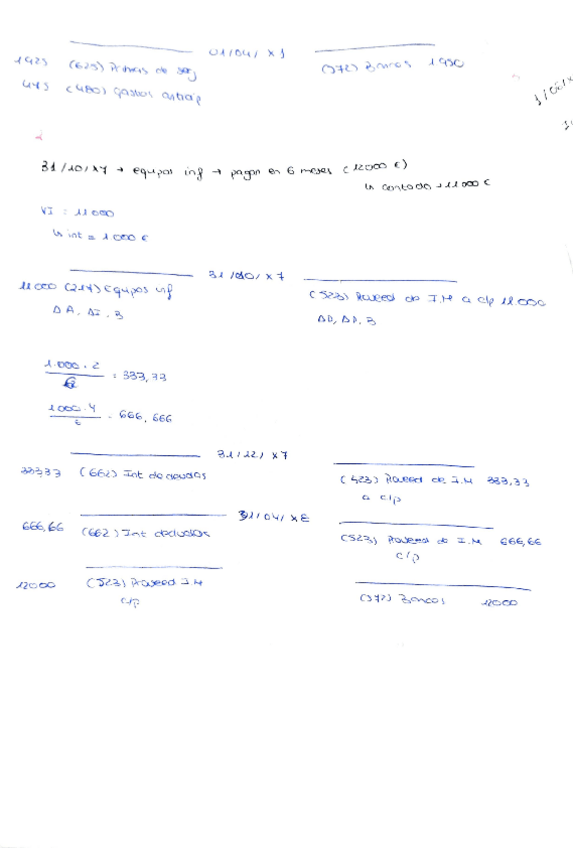 01/04/ x1
1425 (625) Primas de seg (572) Bancos 1900
475 (480) gastos anticip
31/10/x7 → equipos inf → pagan en 6 meses (12000 €)
↳ contado → 11000 €
VI : 11000
↳ int = 1000 €
31/10/x7
11000 (217) Equipos inf (523) Proveed de I.M a c/p 11000
ΔA, ΔI, B
1.000 · 2 / 6 = 333,33
1000 · 4 = 666,666
31/12/ x7
333,33 (662) Int de deudas (523) Proveed de I.M 333,33
a c/p
/04/ x8
666,66 (662) Int deudas (523) Proveed de I.M 666,66
c/p
12000 (523) Proveed I.M (572) Bancos 12000
c/p